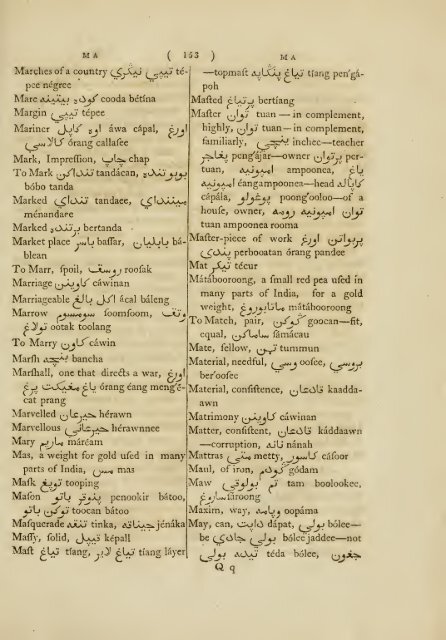 MA ( 153 ) MA
Marches of a country تيڤي نڬري té-
pee négree
Mare كوده بيتينه cooda bétína
Margin تيڤي tépee
Mariner اوه كاڤل áwa cápal, اورغ
كالاسي órang callaſee
Mark, Impreſſion, چاپ chap
To Mark تنداكن tandácan, بوبو تنده
bóbo tanda
Marked تنداي tandaee,
ménandare
Marked برتنده bertanda
Market place باسر baſſar, بابليان bá-
blean
To Marr, ſpoil, روسق rooſak
Marriage كاوينن cáwinan
Marriageable اكل بالغ ácal báleng
Marrow سومسوم ſoomſoom,
ootak toolang
To Marry كاون cáwin
Marſh بنچه bancha
Marſhall, one that directs a war, اورغ
órang éang meng'é-
cat prang
Marvelled حيرعن hérawn
Marvellous hérawnnee
Mary ماريم máréam
Mas, a weight for gold uſed in many
parts of India, مس mas
Maſk توڤغ tooping
Maſon پنوقر باتو penookir bátoo,
توكن باتو toocan bátoo
Maſquerade تنقه tinka, جيناقه jénáka
Maſſy, ſolid, كيڤل képall
Maſt تياغ tíang, تياغ لاير tíang láyer
—topmaſt tíang pen'gá-
poh
Maſted برتياغ bertíang
Maſter توان tuan — in complement,
highly, توان tuan — in complement,
familiarly, inchee—teacher
peng'ájar—owner per-
tuan, امڤونيه ampoonea, ياغ
امڤونيه éangampoonea—head كاڤاله
cápála, poong'ooloo—of a
houſe, owner, توان امڤونيه رومه
tuan ampoonea rooma
Maſter-piece of work
perbooatan órang pandee
Mat تيكر técur
Mátábooroong, a ſmall red pea uſed in
many parts of India, for a gold
weight, ماتابوروغ mátábooroong
To Match, pair, goocan—fit,
equal, ساماكن ſámácau
Mate, fellow, تمن tummun
Material, needful, وسي ooſee, بروسي
ber'ooſee
Material, conſiſtence, قادعان kaadda-
awn
Matrimony كاوينن cáwinan
Matter, conſiſtent, قادعان káddaawn
—corruption, نانه nánah
Mattras متي metty, كاسور cáſoor
Maul, of iron, گودم gódam
Maw تم بولوقي tam boolookee,
ساروغ ſároong
Maxim, way, وپامه oopáma
May, can, داپت dápat, بولي bólee—
be بولي جادي bólee jaddee—not
تيده بولي téda bólee, جغون
Q q